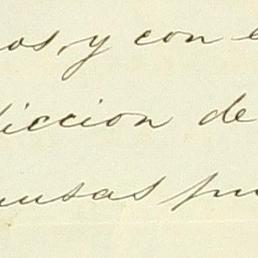 os, y con e
diccion de
ausas pu